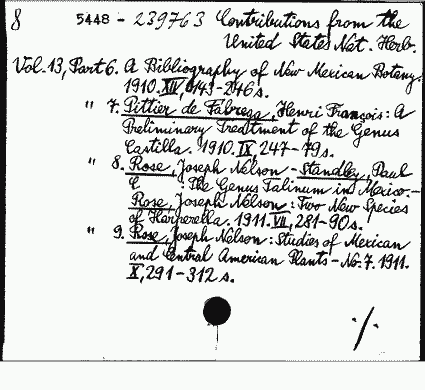 8 5448 - 239763 Contributions from the
United States Nat. Herb.
Vol. 13, Part 6. A Bibliography of New Mexican Botany.
1910. XII, 143-246 s.
" 7. Pittier de Fabrega, Henri François: A
Preliminary Treatment of the Genus
Castilla. 1910. IX, 247-79 s.
" 8. Rose, Joseph Nelson - Standley, Paul
C. : The Genus Talinum in Mexico. -
Rose, Joseph Nelson: Two New Species
of Harperella. 1911. VII, 281-90 s.
" 9. Rose, Joseph Nelson: Studies of Mexican
and Central American Plants - No. 7. 1911.
X, 291-312 s.
·/·